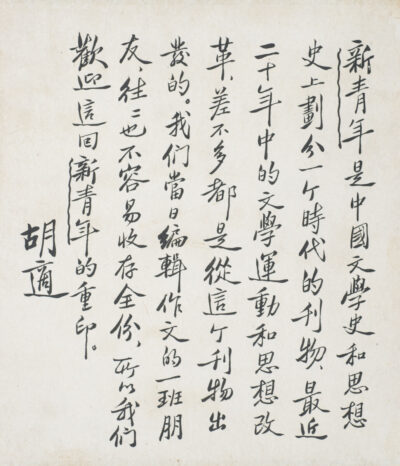 新青年是中國文學史和思想
史上劃分一个時代的刊物，最近
二十年中的文學運動和思想改
革，差不多都是從這个刊物出
發的。我們當日編輯作文的一班朋
友，往往也不容易收存全份，所以我們
歡迎這回新青年的重印。
胡適